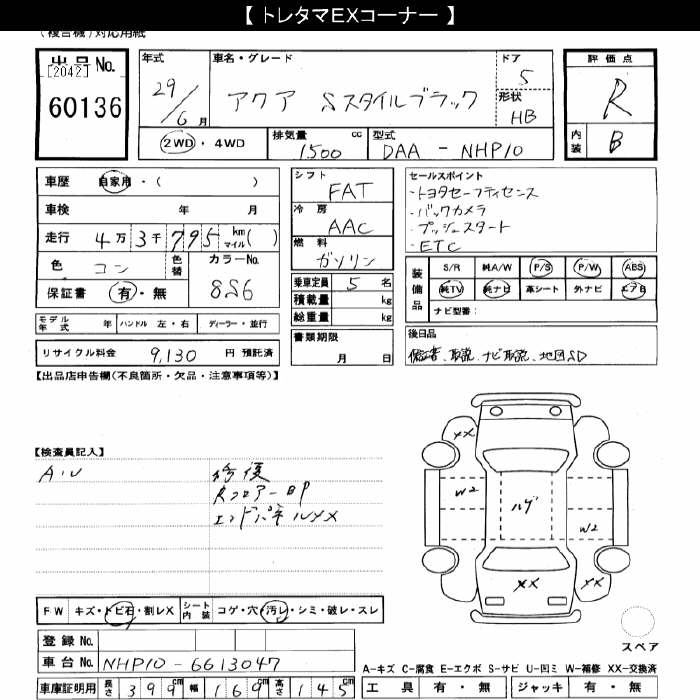 【 トレタマEXコーナー 】
(複合機)対応用紙
出品No.
[2042]
60136
年式
29/6月
車名・グレード
アクア Sスタイルブラック
ドア
5
形状
HB
評価点
R
内装
B
2WD・4WD
排気量 cc
1500
型式
DAA - NHP10
車歴 自家用・( )
車検 年 月
走行 4万3千795 km マイル( )
色 コン 色替
カラーNo.
8S6
保証書 有・無
モデル年式 年 ハンドル 左・右 ディーラー・並行
リサイクル料金 9,130 円 預託済
シフト
FAT
冷房
AAC
燃料
ガソリン
乗車定員 5 名
積載量 kg
総重量 kg
書類期限
月 日
セールスポイント
・トヨタセーフティセンス
・バックカメラ
・プッシュスタート
・ETC
装備品
S/R 純A/W P/S P/W ABS
純TV 純ナビ 革シート 外ナビ エアB
ナビ型番:
後日品
保証書、取説、ナビ取説、地図SD
【出品店申告欄(不良箇所・欠品・注意事項等)】
【検査員記入】
A・U
修復
Rフロアー BP
エンドパネルXX
XX
W2
ルーフ
W2
XX
XX
スペア
FW キズ・トビ石・割レX
シート内装 コゲ・穴・汚レ・シミ・破レ・スレ
登録No.
車台No. NHP10-6613047
車庫証明用 長さ 399cm 幅 169cm 高さ 145cm
A-キズ C-腐食 E-エクボ S-サビ U-凹ミ W-補修 XX-交換済
工具 有・無 ジャッキ 有・無